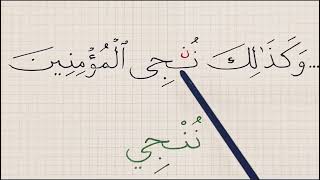 ...وَكَذَٰلِكَ نُـۨجِى ٱلْمُؤْمِنِينَ
نُنْجِي